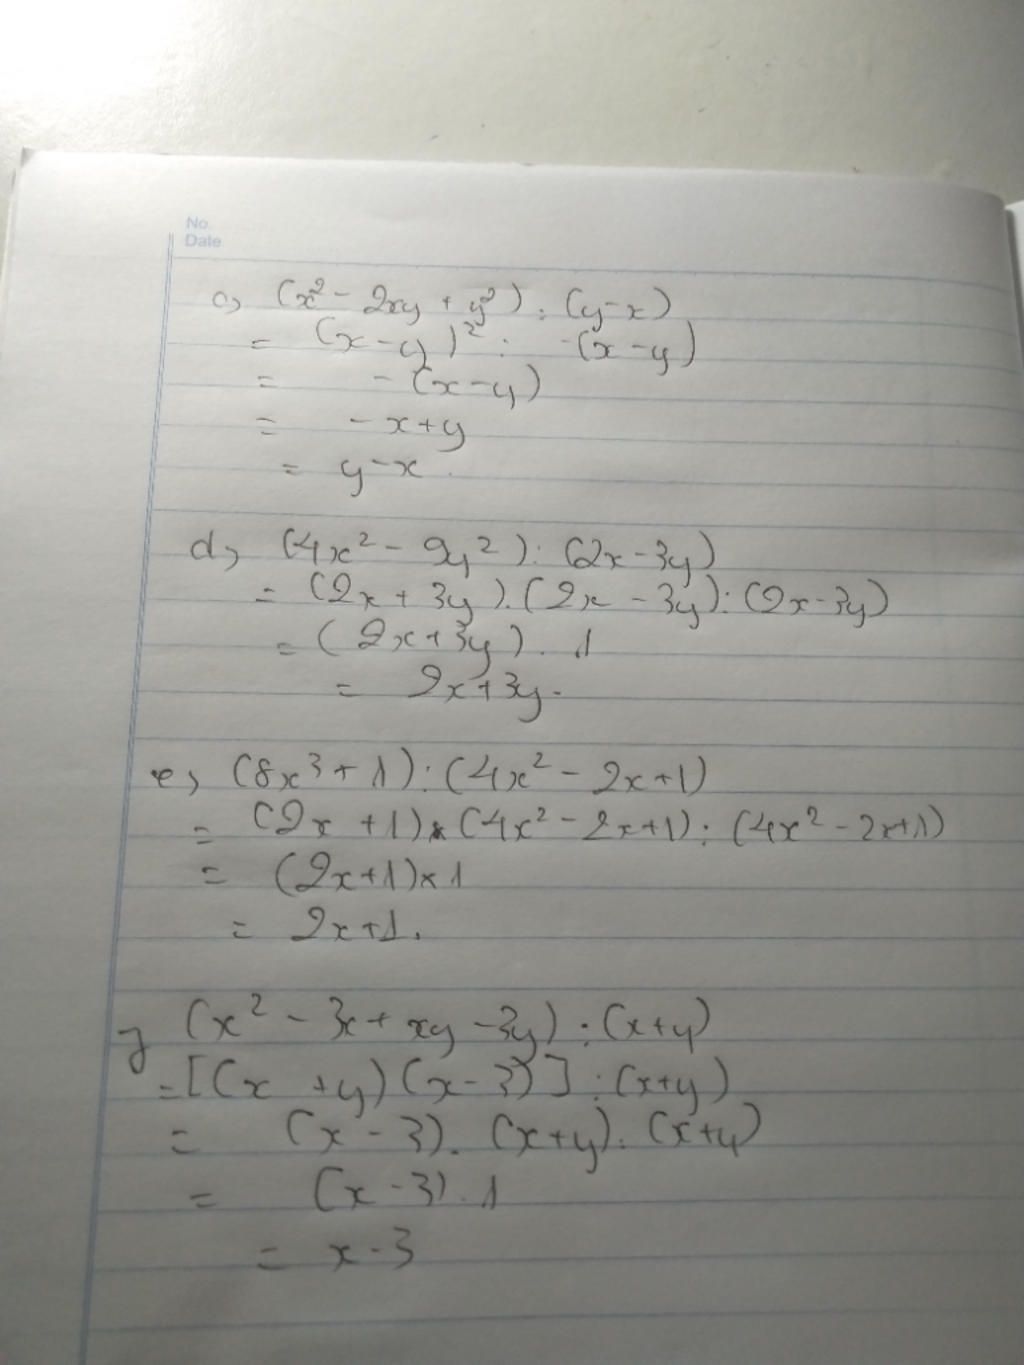 No.
Date
c, (x² - 2xy + y²) : (y-x)
= (x-y)² : -(x-y)
= -(x-y)
= -x+y
= y-x.
d, (4x² - 9y²) : (2x-3y)
= (2x + 3y).(2x - 3y) : (2x-3y)
= (2x+3y) . 1
= 2x+3y.
e, (8x³ + 1) : (4x² - 2x+1)
= (2x +1)×(4x² - 2x+1) : (4x² - 2x+1)
= (2x+1)×1
= 2x+1.
(x² - 3x + xy - 3y) : (x+y)
=[(x +y)(x-3)] : (x+y)
= (x-3). (x+y) : (x+y)
= (x-3) . 1
= x-3